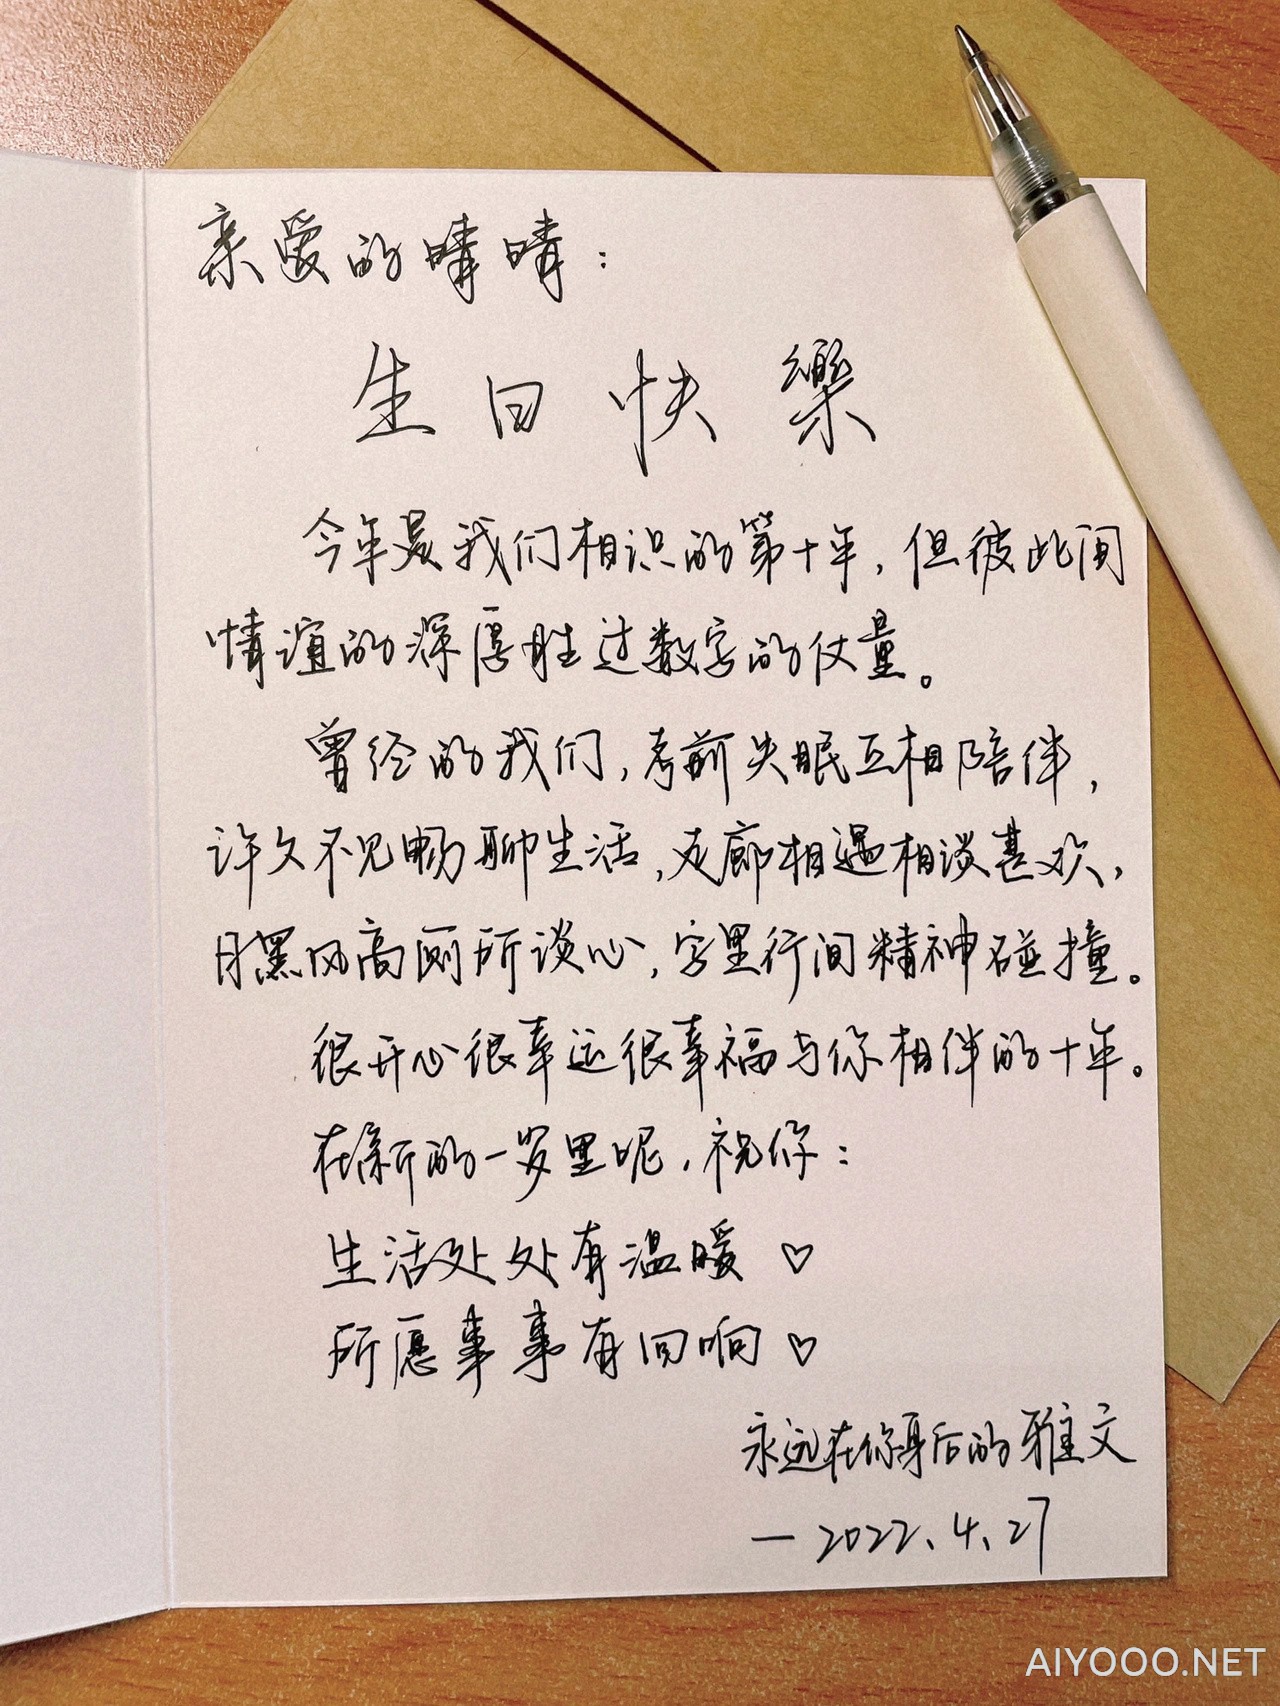 亲爱的晴晴：
生日快樂
今年是我们相识的第十年，但彼此间
情谊的深厚胜过数字的仗量。
曾经的我们，考前失眠互相陪伴，
许久不见畅聊生活，走廊相遇相谈甚欢，
月黑风高厕所谈心，字里行间精神碰撞。
很开心很幸运很幸福与你相伴的十年。
在新的一岁里呢，祝你：
生活处处有温暖♡
所愿事事有回响♡
永远在你身后的雅文
—2022.4.27
AIYOOO.NET